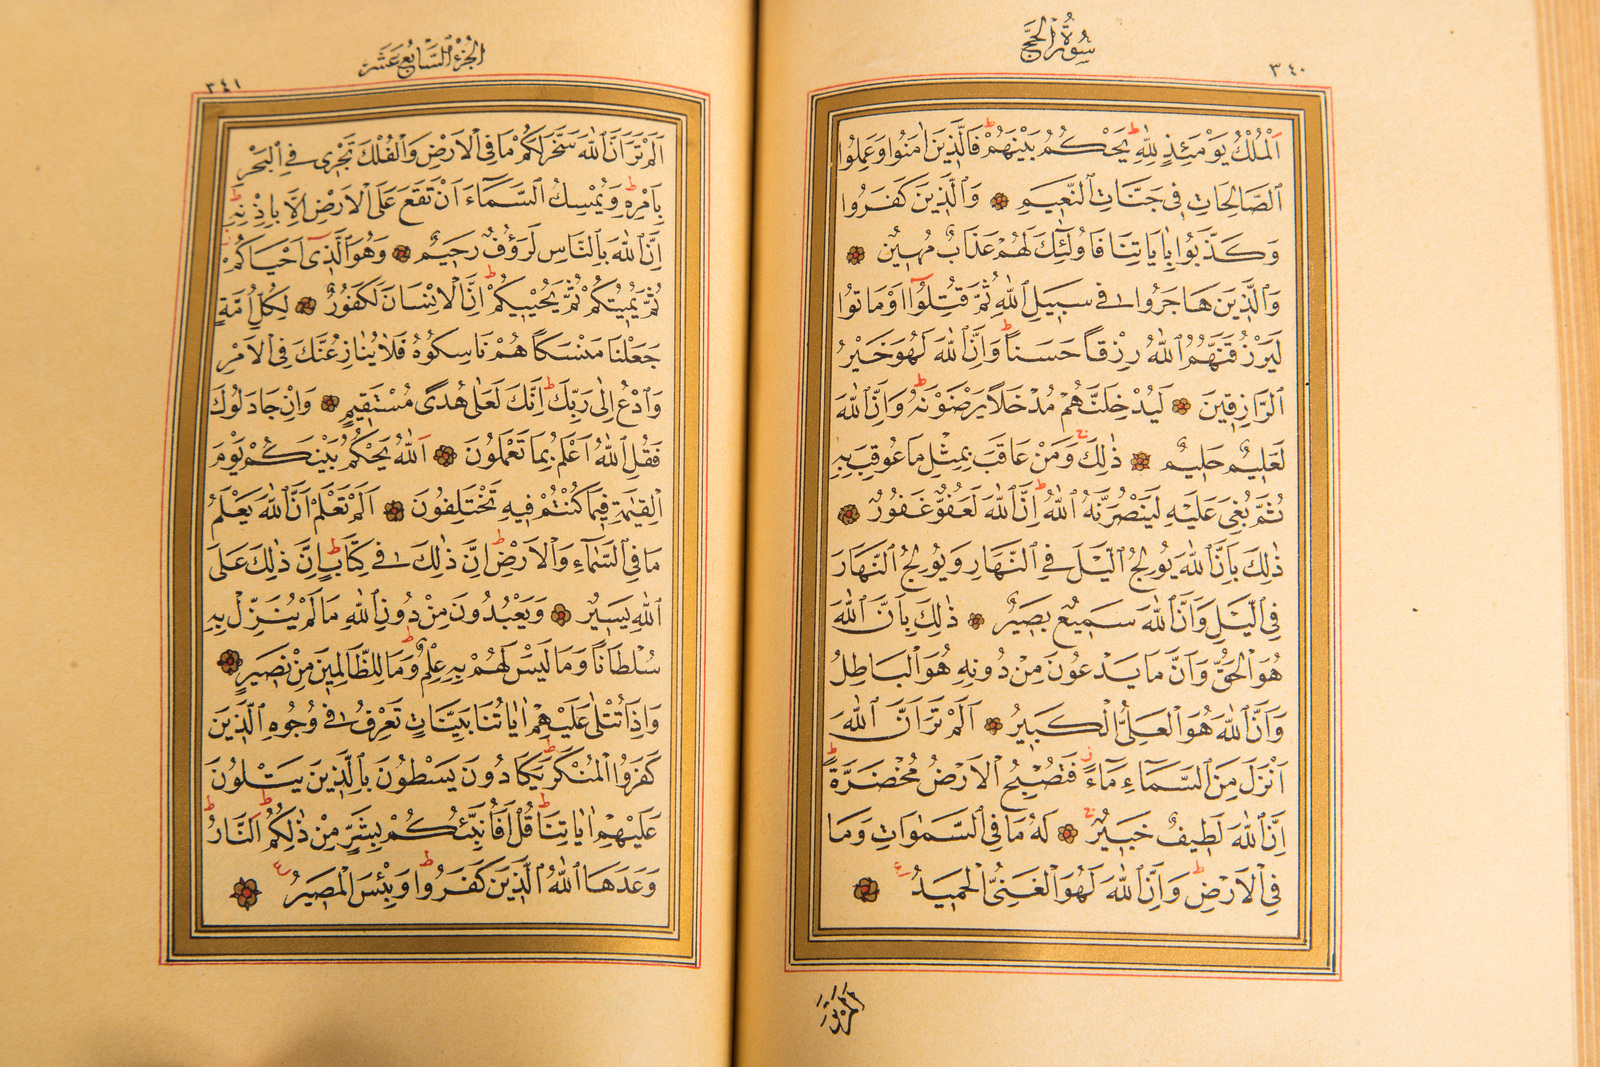 سُورَةُ الْحَجِّ
٣٤٠
اَلْمُلْكُ يَوْمَئِذٍ لِلّٰهِ ط يَحْكُمُ بَيْنَهُمْ ط فَالَّذِينَ اٰمَنُوا وَعَمِلُوا
الصَّالِحَاتِ فِي جَنَّاتِ النَّعِيمِ وَالَّذِينَ كَفَرُوا
وَكَذَّبُوا بِاٰيَاتِنَا فَاُولٰٓئِكَ لَهُمْ عَذَابٌ مُهِينٌ
وَالَّذِينَ هَاجَرُوا فِي سَبِيلِ اللّٰهِ ثُمَّ قُتِلُوٓا اَوْ مَاتُوا
لَيَرْزُقَنَّهُمُ اللّٰهُ رِزْقًا حَسَنًا ط وَاِنَّ اللّٰهَ لَهُوَ خَيْرُ
الرَّازِقِينَ لَيُدْخِلَنَّهُمْ مُدْخَلًا يَرْضَوْنَهُ ط وَاِنَّ اللّٰهَ
لَعَلِيمٌ حَلِيمٌ ذٰلِكَ ج وَمَنْ عَاقَبَ بِمِثْلِ مَا عُوقِبَ بِهِ
ثُمَّ بُغِيَ عَلَيْهِ لَيَنْصُرَنَّهُ اللّٰهُ ط اِنَّ اللّٰهَ لَعَفُوٌّ غَفُورٌ
ذٰلِكَ بِاَنَّ اللّٰهَ يُولِجُ الَّيْلَ فِي النَّهَارِ وَيُولِجُ النَّهَارَ
فِي الَّيْلِ وَاَنَّ اللّٰهَ سَمِيعٌ بَصِيرٌ ذٰلِكَ بِاَنَّ اللّٰهَ
هُوَ الْحَقُّ وَاَنَّ مَا يَدْعُونَ مِنْ دُونِهِ هُوَ الْبَاطِلُ
وَاَنَّ اللّٰهَ هُوَ الْعَلِيُّ الْكَبِيرُ اَلَمْ تَرَ اَنَّ اللّٰهَ
اَنْزَلَ مِنَ السَّمَٓاءِ مَٓاءً ز فَتُصْبِحُ الْاَرْضُ مُخْضَرَّةً ط
اِنَّ اللّٰهَ لَطِيفٌ خَبِيرٌ ج لَهُ مَا فِي السَّمٰوَاتِ وَمَا
فِي الْاَرْضِ ط وَاِنَّ اللّٰهَ لَهُوَ الْغَنِيُّ الْحَمِيدُ ع
اَلَمْ تَرَ
اَلْجُزْءُ السَّابِعُ عَشَرَ
٣٤١
اَلَمْ تَرَ اَنَّ اللّٰهَ سَخَّرَ لَكُمْ مَا فِي الْاَرْضِ وَالْفُلْكَ تَجْرِي فِي الْبَحْرِ
بِاَمْرِهِ ط وَيُمْسِكُ السَّمَٓاءَ اَنْ تَقَعَ عَلَى الْاَرْضِ اِلَّا بِاِذْنِهِ ط
اِنَّ اللّٰهَ بِالنَّاسِ لَرَؤُفٌ رَحِيمٌ وَهُوَ الَّذِٓي اَحْيَاكُمْ
ثُمَّ يُمِيتُكُمْ ثُمَّ يُحْيِيكُمْ ط اِنَّ الْاِنْسَانَ لَكَفُورٌ لِكُلِّ اُمَّةٍ
جَعَلْنَا مَنْسَكًا هُمْ نَاسِكُوهُ فَلَا يُنَازِعُنَّكَ فِي الْاَمْرِ
وَادْعُ اِلٰى رَبِّكَ ط اِنَّكَ لَعَلٰى هُدًى مُسْتَقِيمٍ وَاِنْ جَادَلُوكَ
فَقُلِ اللّٰهُ اَعْلَمُ بِمَا تَعْمَلُونَ اَللّٰهُ يَحْكُمُ بَيْنَكُمْ يَوْمَ
الْقِيٰمَةِ فِيمَا كُنْتُمْ فِيهِ تَخْتَلِفُونَ اَلَمْ تَعْلَمْ اَنَّ اللّٰهَ يَعْلَمُ
مَا فِي السَّمَٓاءِ وَالْاَرْضِ ط اِنَّ ذٰلِكَ فِي كِتَابٍ ط اِنَّ ذٰلِكَ عَلَى
اللّٰهِ يَسِيرٌ وَيَعْبُدُونَ مِنْ دُونِ اللّٰهِ مَا لَمْ يُنَزِّلْ بِهِ
سُلْطَانًا وَمَا لَيْسَ لَهُمْ بِهِ عِلْمٌ ط وَمَا لِلظَّالِمِينَ مِنْ نَصِيرٍ
وَاِذَا تُتْلٰى عَلَيْهِمْ اٰيَاتُنَا بَيِّنَاتٍ تَعْرِفُ فِي وُجُوهِ الَّذِينَ
كَفَرُوا الْمُنْكَرَ ط يَكَادُونَ يَسْطُونَ بِالَّذِينَ يَتْلُونَ
عَلَيْهِمْ اٰيَاتِنَا ط قُلْ اَفَاُنَبِّئُكُمْ بِشَرٍّ مِنْ ذٰلِكُمْ ط اَلنَّارُ ط
وَعَدَهَا اللّٰهُ الَّذِينَ كَفَرُوا ط وَبِئْسَ الْمَصِيرُ ع